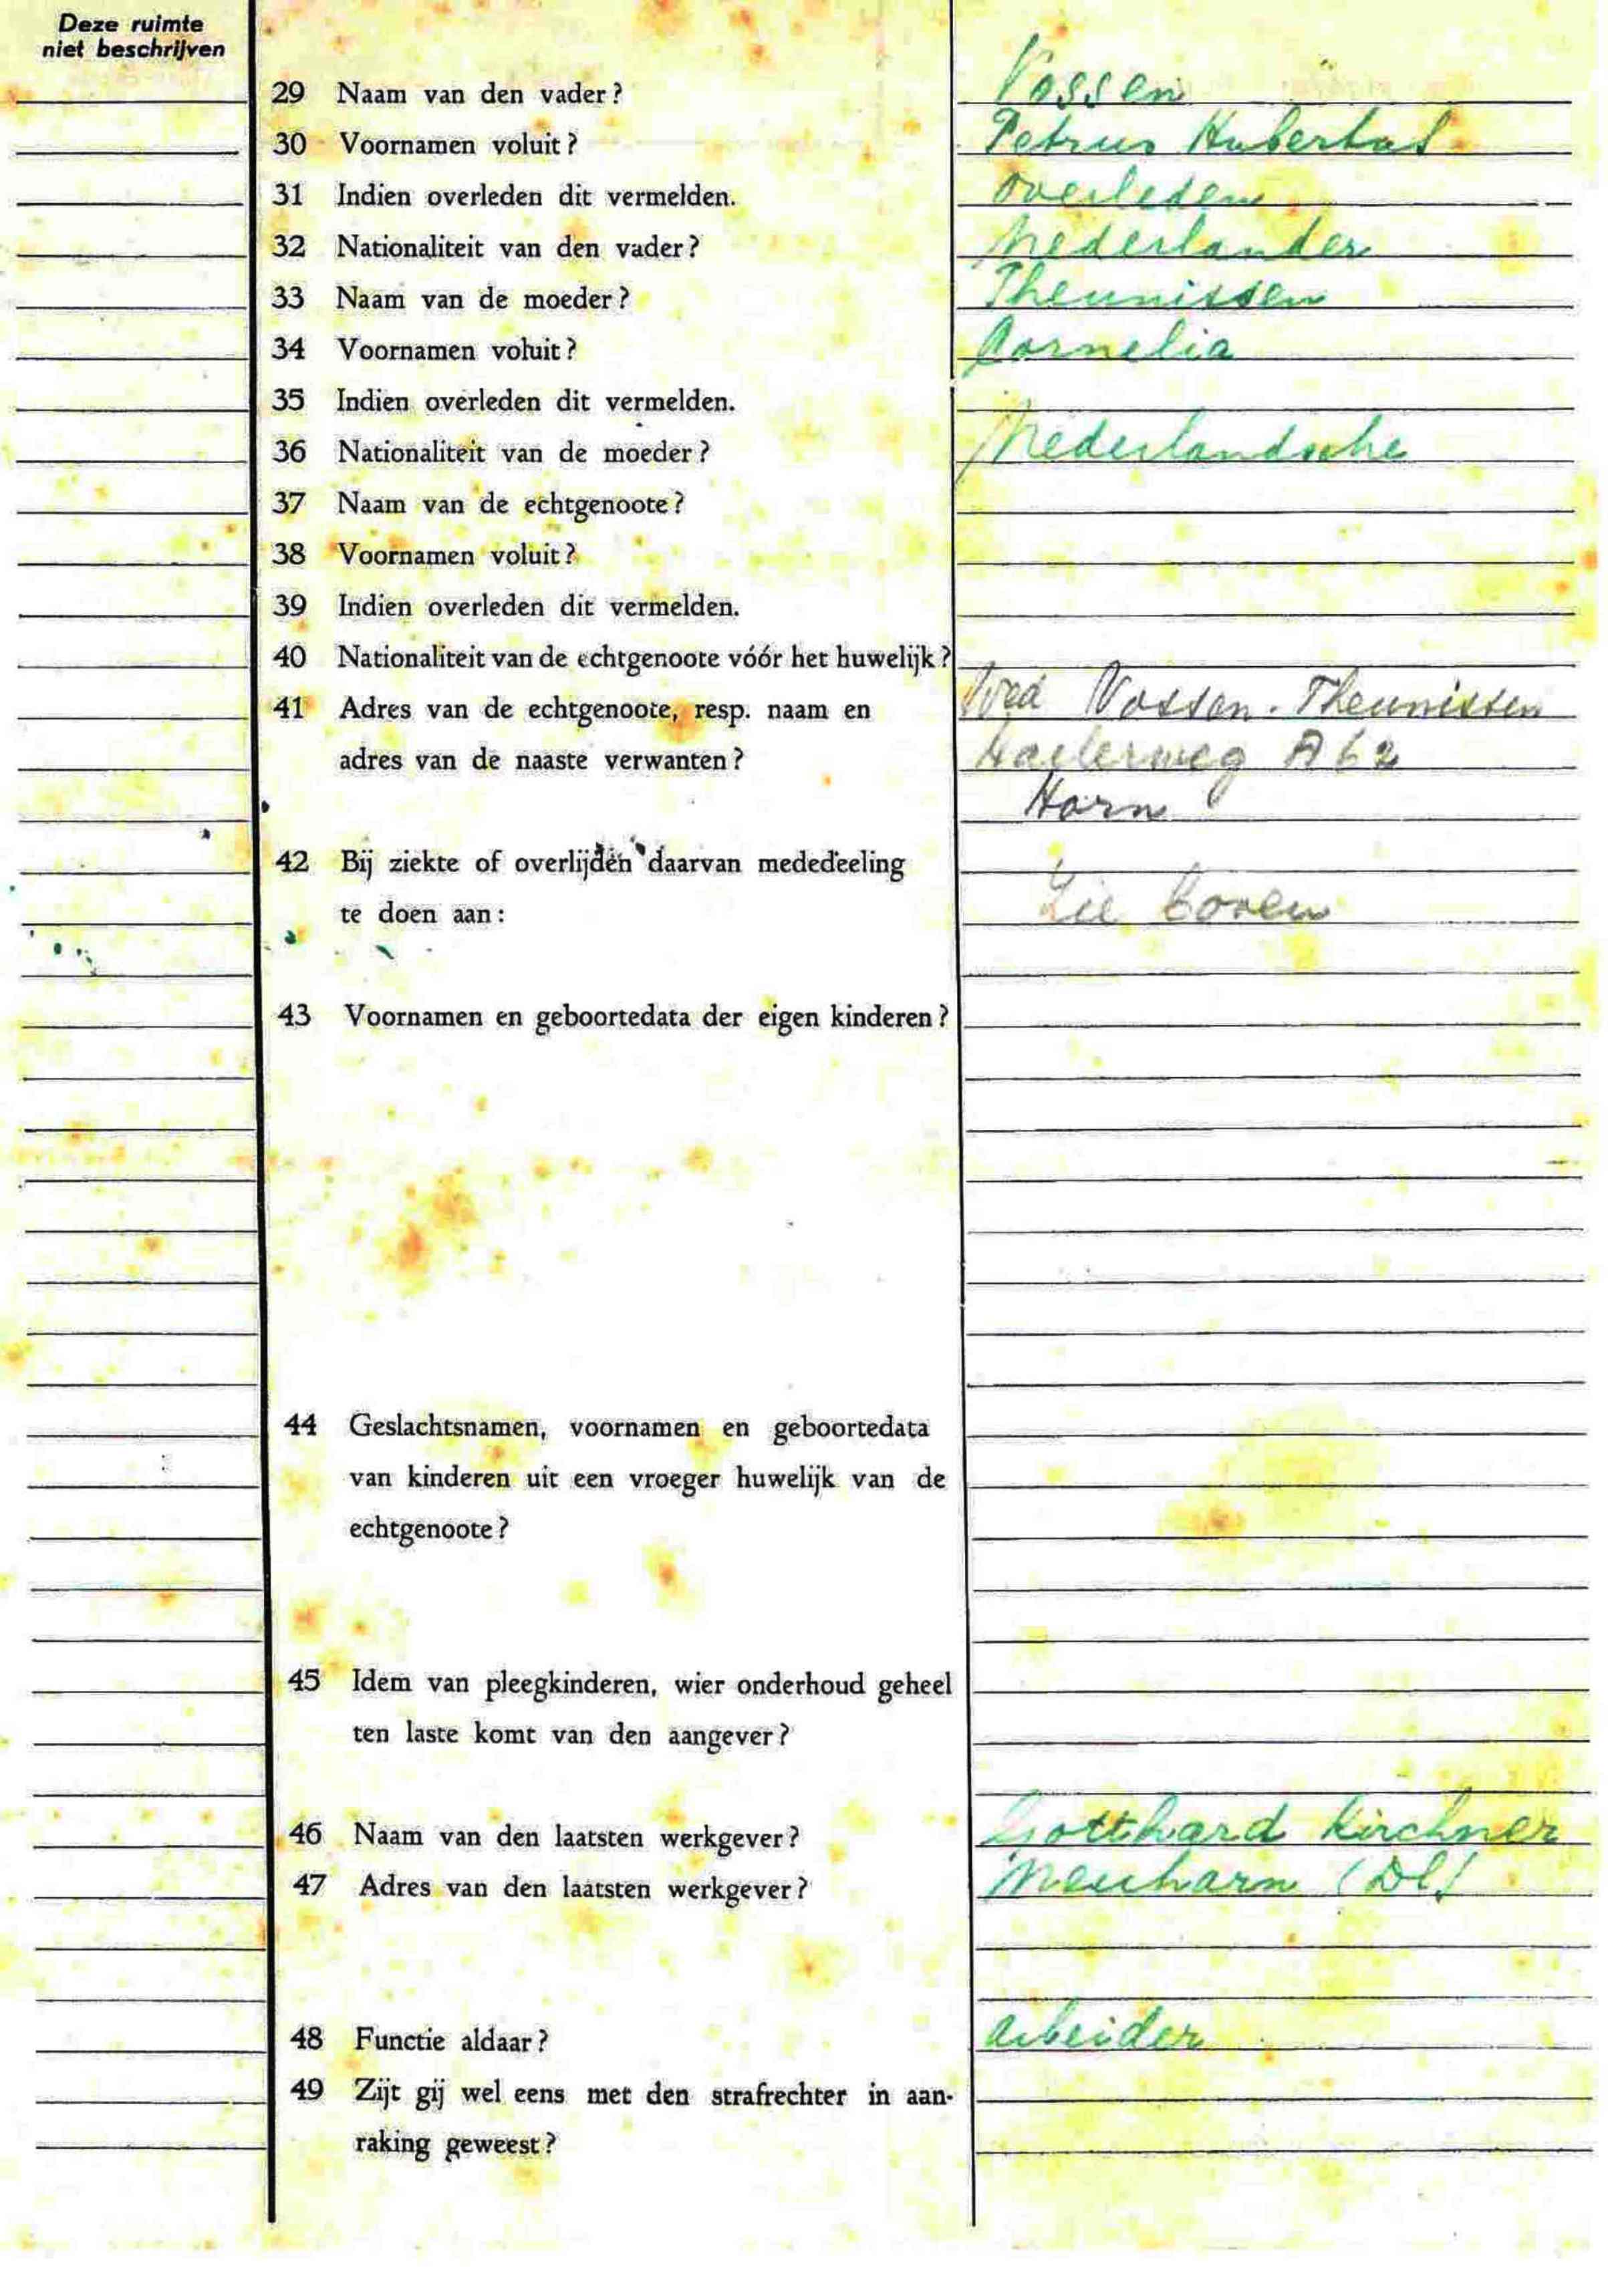 Deze ruimte
niet beschrijven
29 Naam van den vader? Vossen
30 Voornamen voluit? Petrus Hubertus
31 Indien overleden dit vermelden. overleden
32 Nationaliteit van den vader? Nederlander
33 Naam van de moeder? Theunissen
34 Voornamen voluit? Cornelia
35 Indien overleden dit vermelden.
36 Nationaliteit van de moeder? Nederlandsche
37 Naam van de echtgenoote?
38 Voornamen voluit?
39 Indien overleden dit vermelden.
40 Nationaliteit van de echtgenoote vóór het huwelijk?
41 Adres van de echtgenoote, resp. naam en Wed Vossen-Theunissen
adres van de naaste verwanten? Haelerweg A 62
Horn
42 Bij ziekte of overlijden daarvan mededeeling
te doen aan: Zie boven
43 Voornamen en geboortedata der eigen kinderen?
44 Geslachtsnamen, voornamen en geboortedata
van kinderen uit een vroeger huwelijk van de
echtgenoote?
45 Idem van pleegkinderen, wier onderhoud geheel
ten laste komt van den aangever?
46 Naam van den laatsten werkgever? Gotthard Kirchner
47 Adres van den laatsten werkgever? (Dl)
48 Functie aldaar? arbeider
49 Zijt gij wel eens met den strafrechter in aan-
raking geweest?